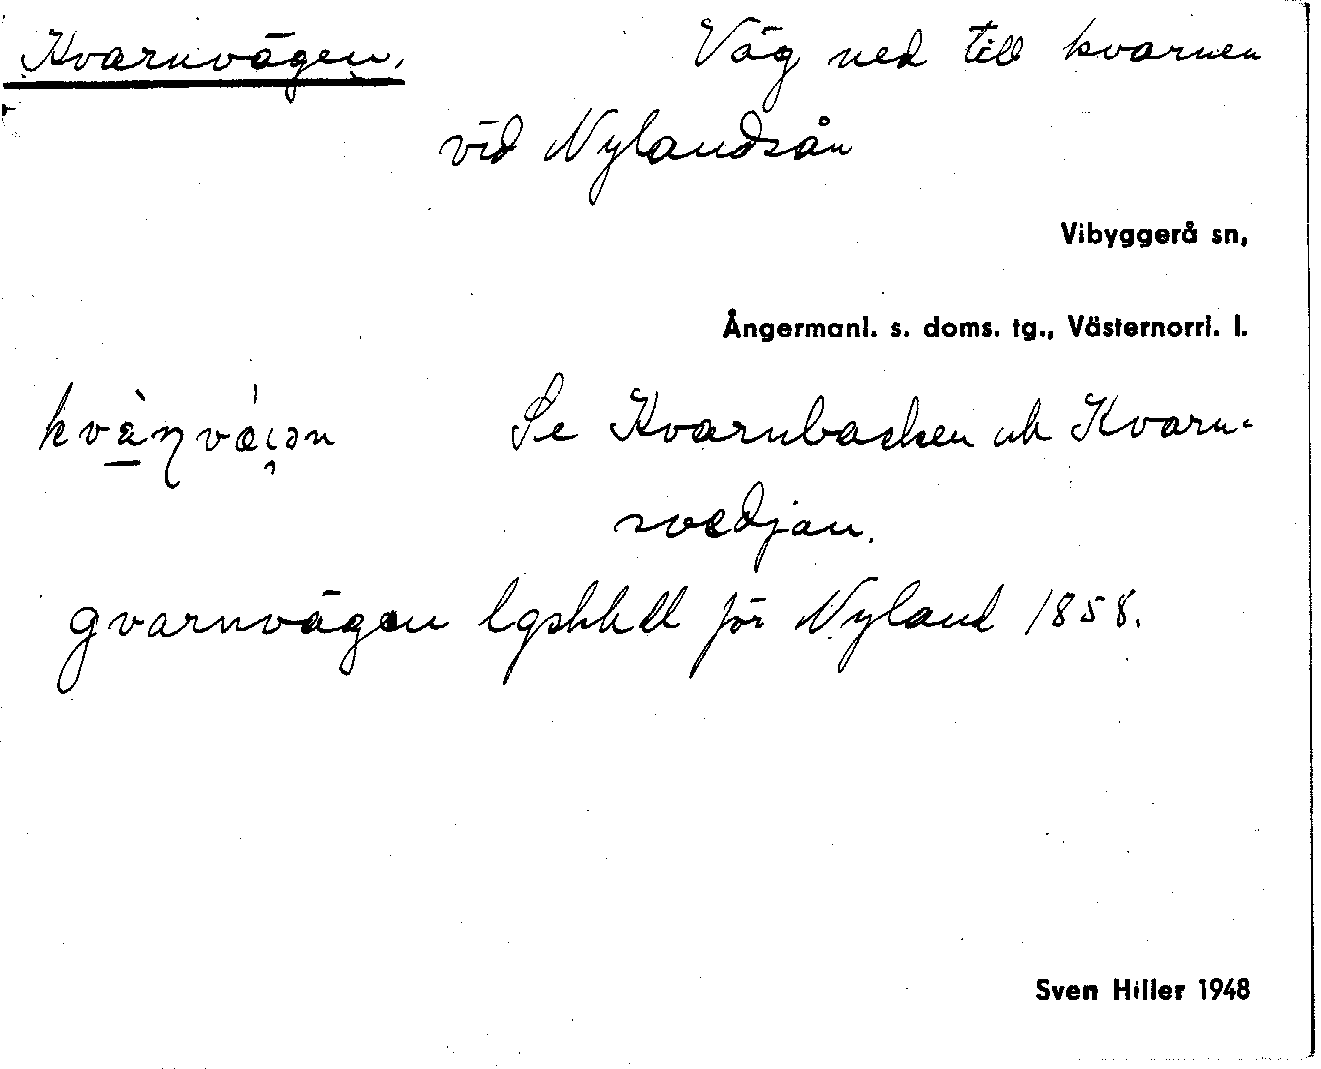 Kvarnvägen. Väg ned till kvarnen
vid Nylandsån
Vibyggerå sn,
Ångermanl. s. doms. tg., Västernorrl. l.
Se Kvarnbacken och Kvarn-
svedjan.
qvarnvägen lgskhdl för Nyland 1858.
Sven Hiller 1948